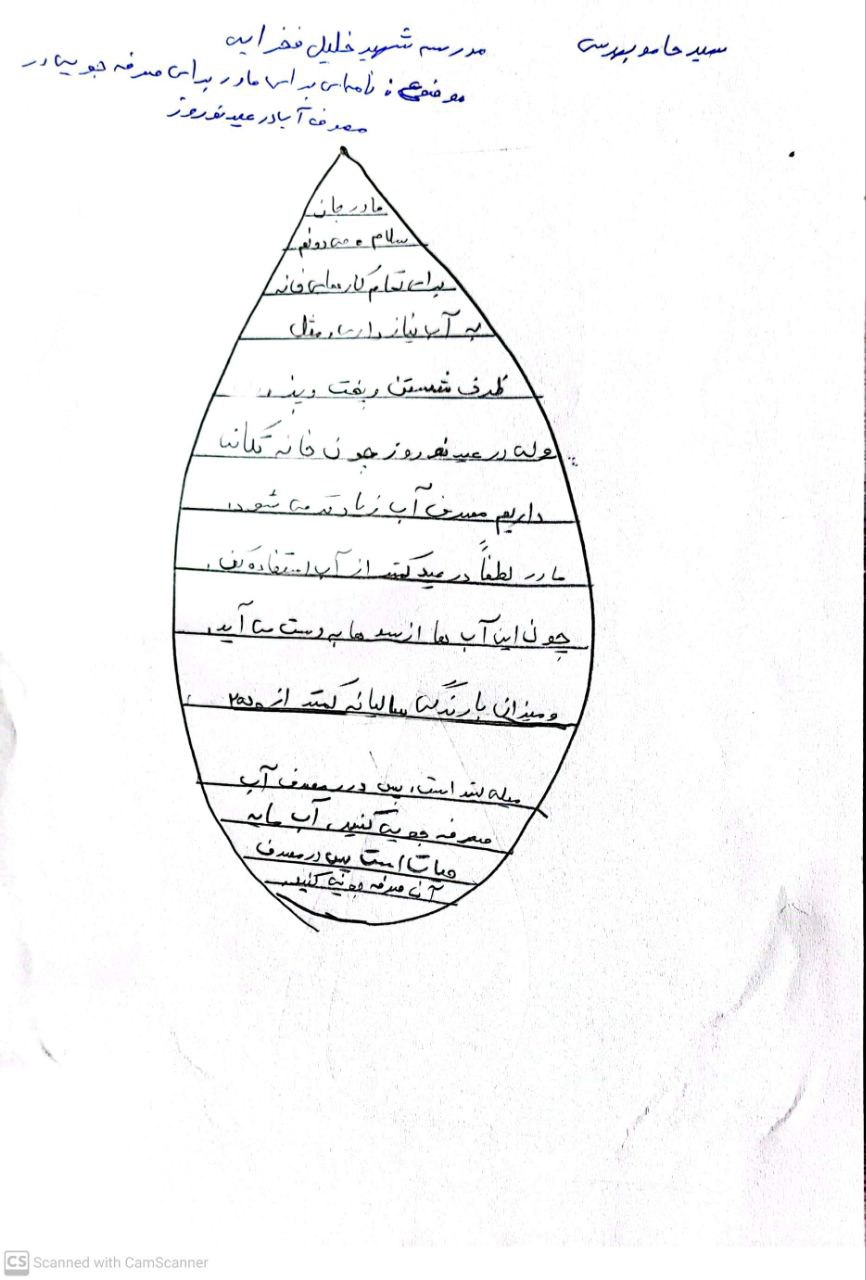 مدرسه شهید خلیل فخرایی
موضوع: نامه‌ای برای مادر برای صرفه جویی در
مصرف آب در عید نوروز
مادر جان
سلام، می دونم
برای تمام کارهای خانه
به آب نیاز داری، مثل
ظرف شستن و پخت و پز
ولی در عید نوروز چون خانه تکانی
داریم مصرف آب زیاد تر می شود.
مادر لطفاً در عید کمتر از آب استفاده کن.
چون این آب ها از سد ها به دست می آید.
و میزان بارندگی سالیانه کمتر از ۲۵۰
میلی لتر است، پس در مصرف آب
صرفه جویی کنید. آب مایه
حیات است پس در مصرف
آن صرفه جویی کنید.
CS Scanned with CamScanner